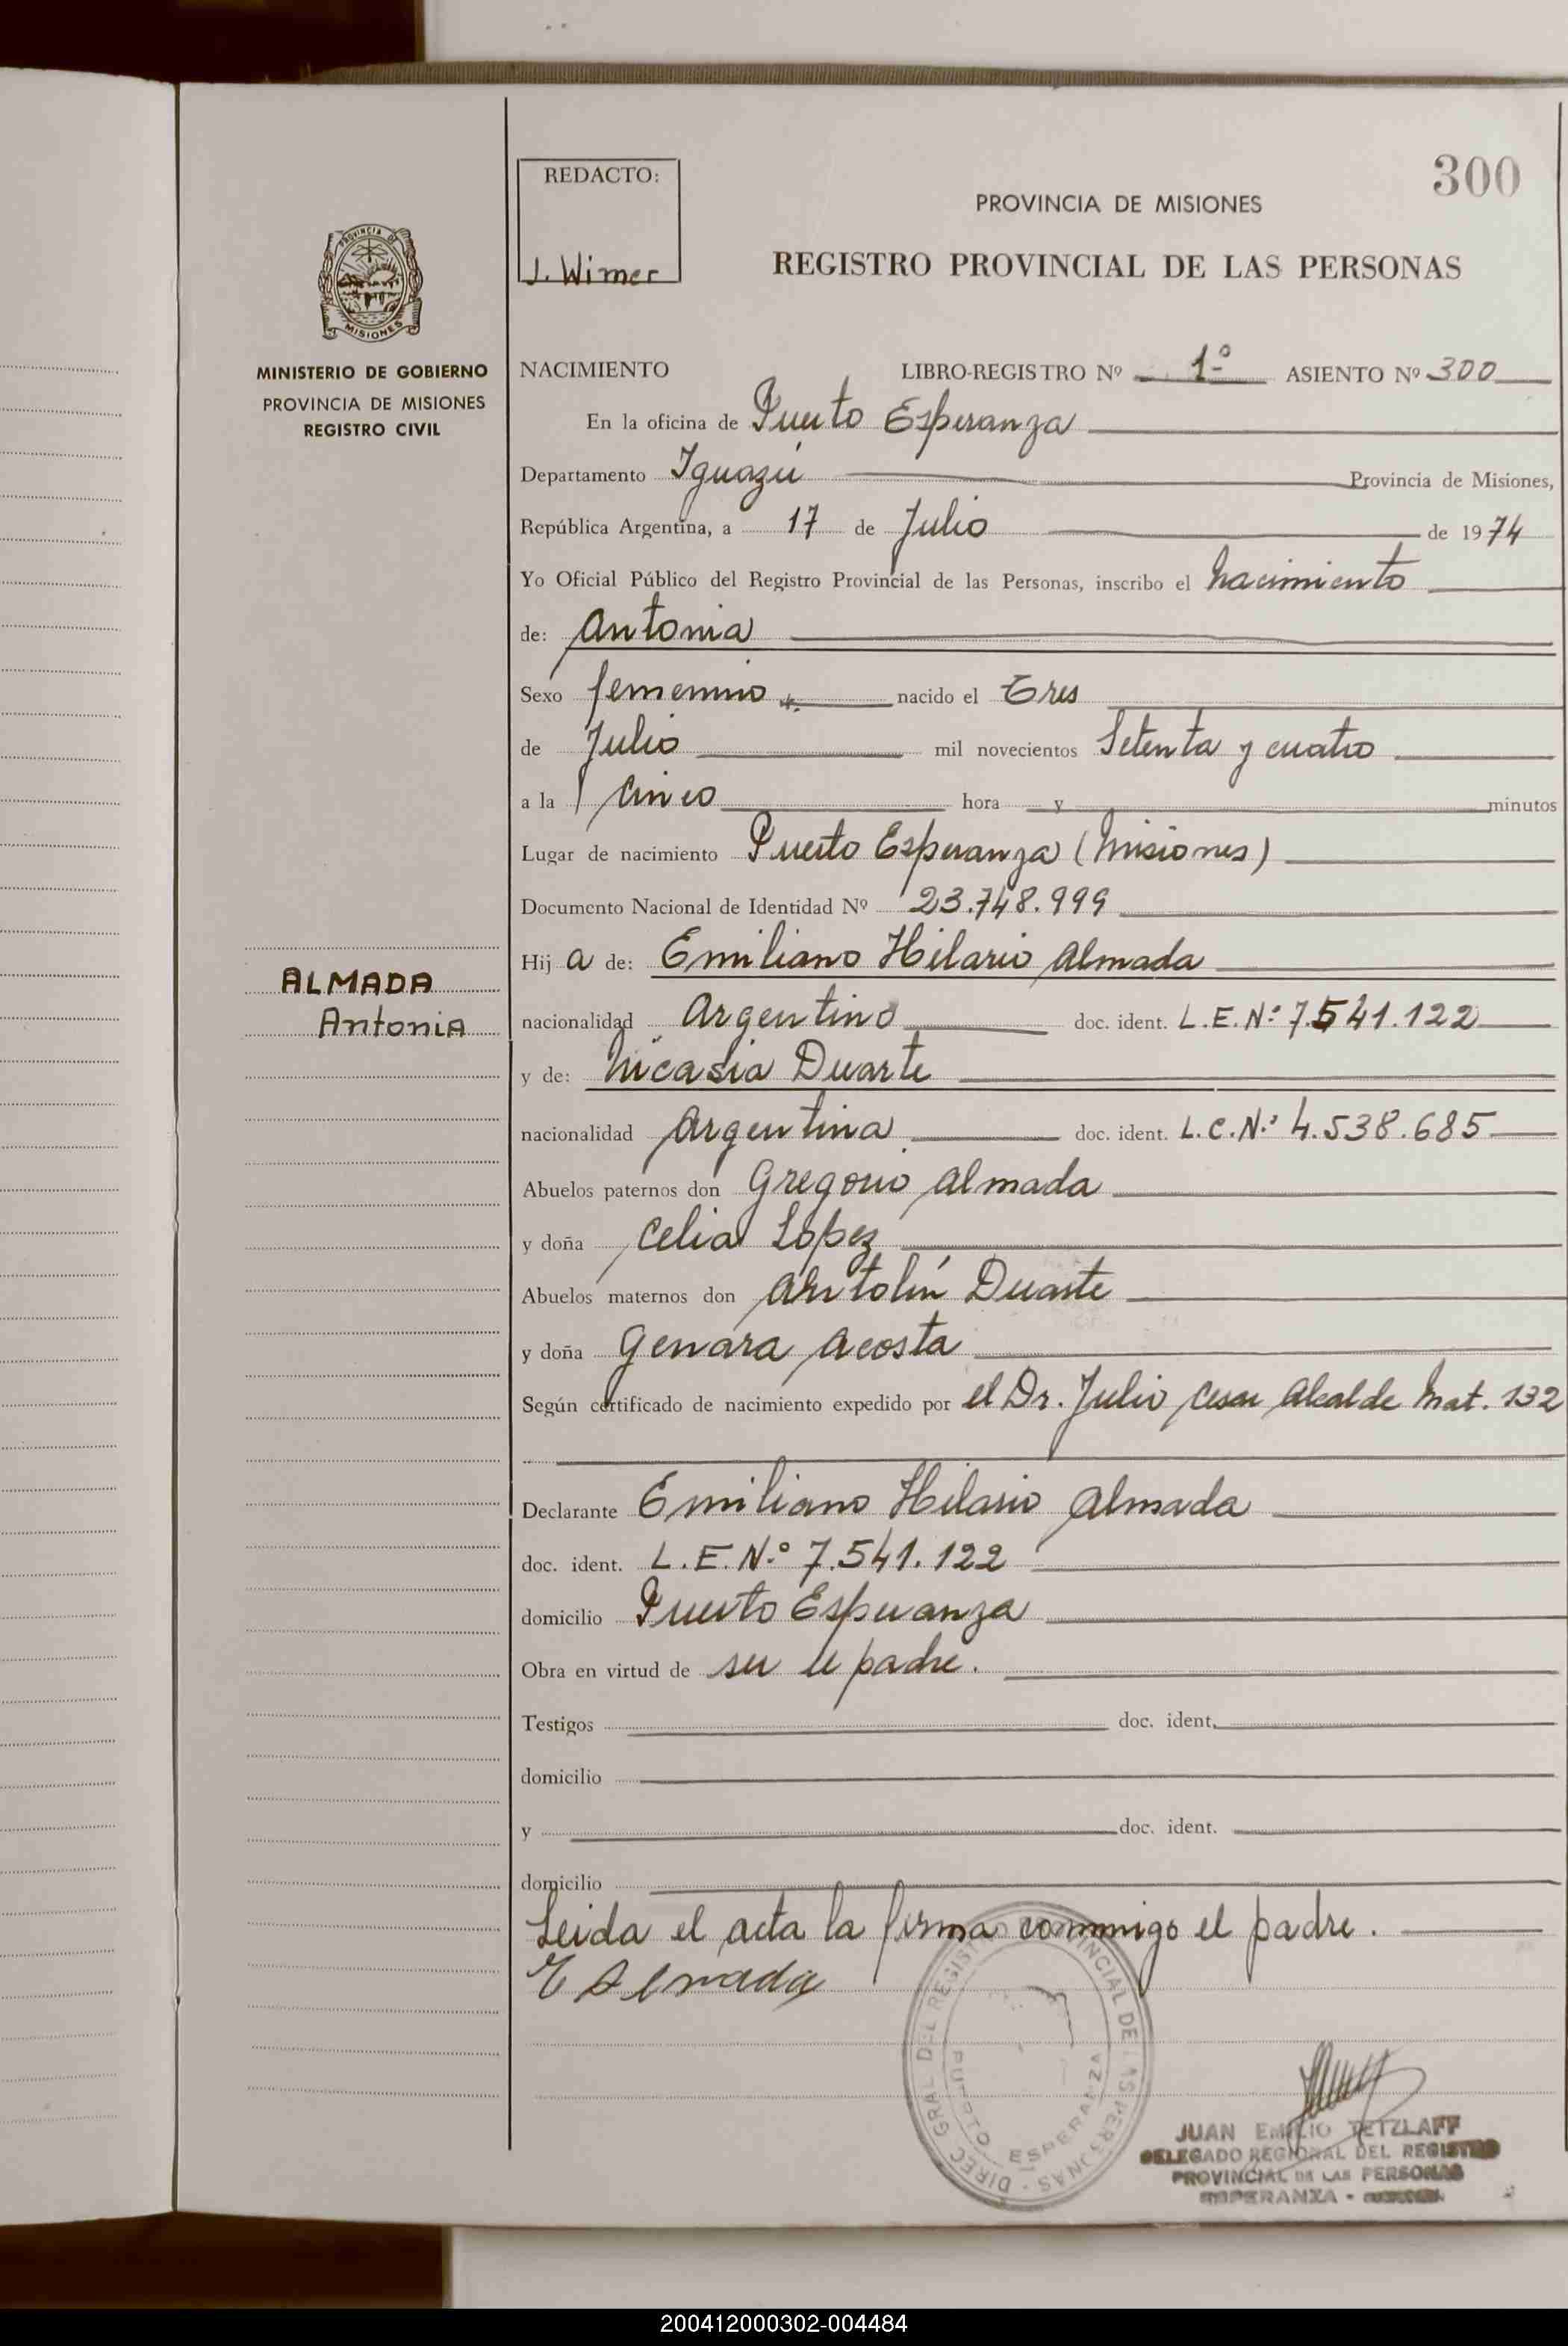 300
REDACTO:
J. Wimer
PROVINCIA DE MISIONES
REGISTRO PROVINCIAL DE LAS PERSONAS
PROVINCIA DE
MISIONES
MINISTERIO DE GOBIERNO
PROVINCIA DE MISIONES
REGISTRO CIVIL
NACIMIENTO LIBRO-REGISTRO Nº 1º ASIENTO Nº 300
En la oficina de Puerto Esperanza
Departamento Iguazú Provincia de Misiones,
República Argentina, a 17 de Julio de 1974
Yo Oficial Público del Registro Provincial de las Personas, inscribo el nacimiento
de: Antonia
Sexo femenino nacido el Tres
de Julio mil novecientos Setenta y cuatro
a la cinco hora y minutos
Lugar de nacimiento Puerto Esperanza (Misiones)
Documento Nacional de Identidad Nº 23.748.999
Hij a de: Emiliano Hilario Almada
ALMADA
Antonia
nacionalidad Argentino doc. ident. L.E.Nº 7.541.122
y de: Nicasia Duarte
nacionalidad Argentina doc. ident. L.C.Nº 4.538.685
Abuelos paternos don Gregorio Almada
y doña Celia Lopez
Abuelos maternos don Antolín Duarte
y doña Genara Acosta
Según certificado de nacimiento expedido por el Dr. Julio Cesar Alcalde Mat. 132
Declarante Emiliano Hilario Almada
doc. ident. L.E.Nº 7.541.122
domicilio Puerto Esperanza
Obra en virtud de ser el padre.
Testigos doc. ident.
domicilio
y doc. ident.
domicilio
Leida el acta la firma conmigo el padre.
E Almada
DIREC GRAL DEL REGISTRO PROVINCIAL DE LAS PERSONAS -
PUERTO ESPERANZA
JUAN EMILIO TETZLAFF
DELEGADO REGIONAL DEL REGISTRO
PROVINCIAL DE LAS PERSONAS
ESPERANZA -
200412000302-004484